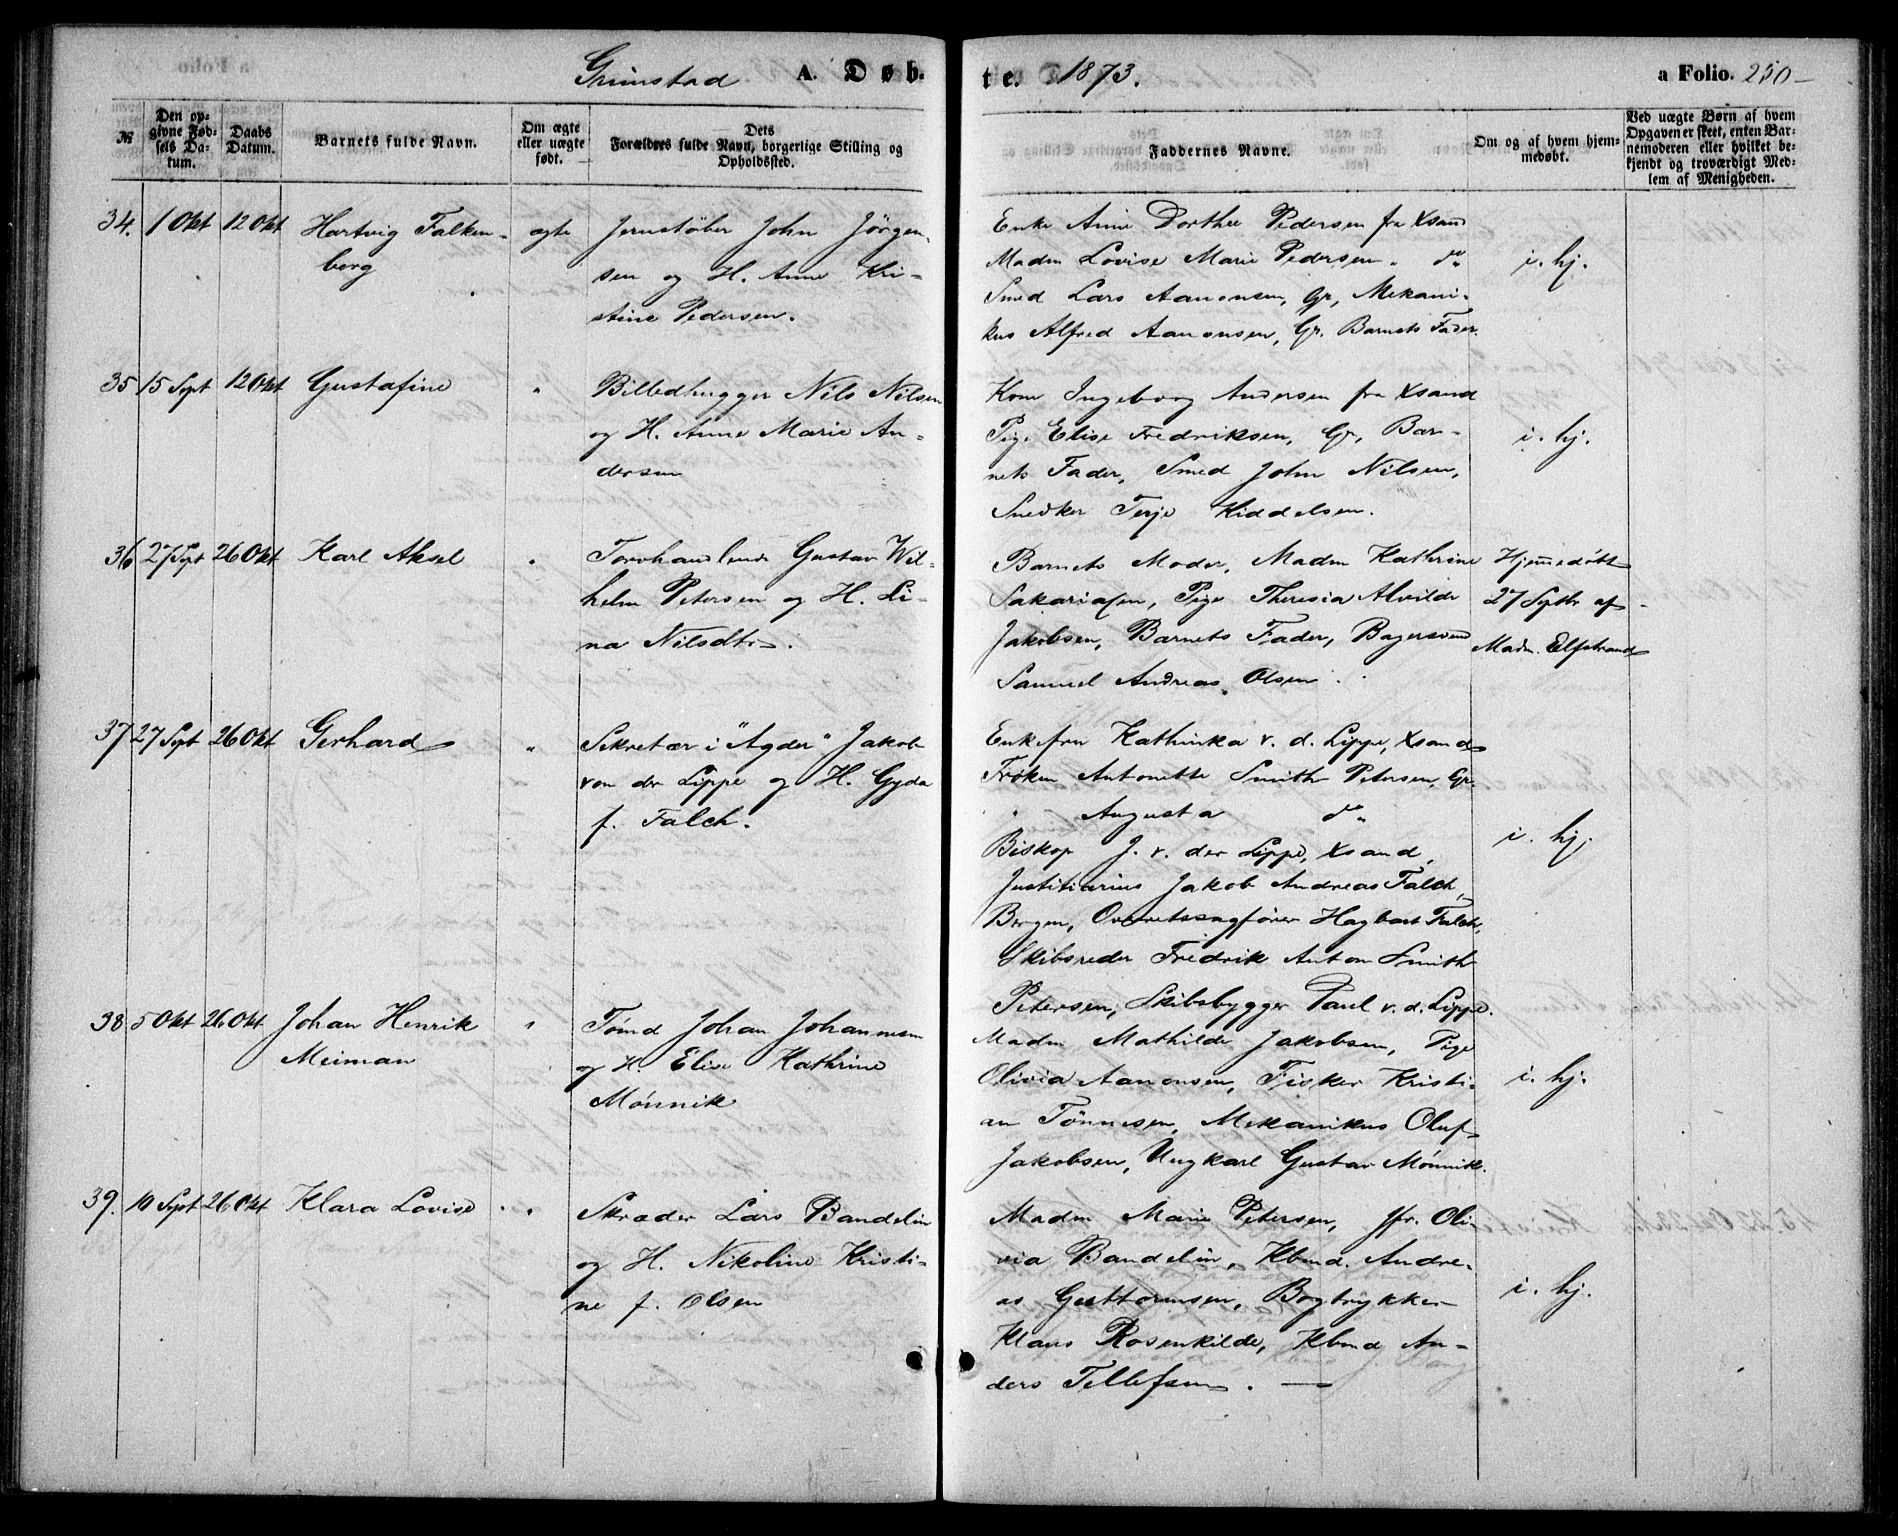 Grimstad A. Døb-
te. 1873. a Folio. 250
№
Den op-
givne Fød-
sels Da-
tum.
Daabs
Datum.
Barnets fulde Navn.
Om ægte
eller uægte
født.
Dets
Forældres fulde Navn, borgerlige Stilling og
Opholdssted.
Faddernes Navne.
Om og af hvem hjem-
medøbt.
Ved uægte Børn af hvem
Opgaven er skeet, enten Bar-
nemoderen eller hvilket be-
kjendt og troværdigt Med-
lem af Menigheden.
34. 1 Okt 12 Okt Hartvig Falken-
berg
ægte
Jernstøber John Jörgen-
sen og H. Anne Kri-
stine Pedersen.
Enke Anne Dorthee Pedersen fra Xsand
Madm Lovise Marie Pedersen " do
Smed Lars Aanonsen, Gr, Mekani-
kus Alfred Aanonsen, Gr. Barnets Fader.
i. hj.
35 15 Sept 12 Okt Gustafine "
Billedhugger Nils Nilsen
og H. Anne Marie An-
dersen
Kone Ingeborg Andersen fra Xsand
Pige Elise Fredriksen, Gr, Bar-
nets Fader, Smed John Nilsen,
Snedker Terje Kiddelsen.
i. hj.
36 27 Sept 26 Okt Karl Aksel "
Torvhandlende Gustav Wil-
helm Petersen og H. Li-
na Nilsdtr.
Barnets Moder, Madm Kathrine
Sakariasen, Pige Theresia Alvilde
Jakobsen, Barnets Fader, Bagersvend
Samuel Andreas Olsen.
Hjemmedøbt
27 Septbr af
Madm. Elfstrand
37 27 Sept 26 Okt Gerhard "
Sekretær i "Agder" Jakob
von der Lippe og H. Gyda
f. Falch.
Enkefru Kathinka v. d. Lippe, Xsand
Frøken Antonette Smith Petersen, Gr.
" Augusta do
Biskop J. v. der Lippe, Xsand,
Justitiarius Jakob Andreas Falch,
Bergen, Overretssagfører Hagbart Falch,
Skibsreder Fredrik Anton Smith
Petersen, Skibsbygger Paul v. d. Lippe.
i. hj.
38 5 Okt 26 Okt Johan Henrik
Meiman
"
Tømd Johan Johannesen
og H. Elise Kathrine
Mönnik
Madm Mathilde Jakobsen, Pige
Olivia Aanonsen, Fisker Kristi-
an Tönnesen, Mekanikus Oluf
Jakobsen, Ungkarl Gustav Mönnik.
i. hj.
39. 10 Sept 26 Okt Klara Lovise "
Skræder Lars Bandelin
og H. Nikoline Kristi-
ne f. Olsen
Madm Marie Petersen, Jfr. Oli-
via Bandelin, Kbmd. Andre-
as Guttormsen, Bogtrykker
Klaus Rosenkilde, Kbmd An-
ders Tellefsen.
i. hj.